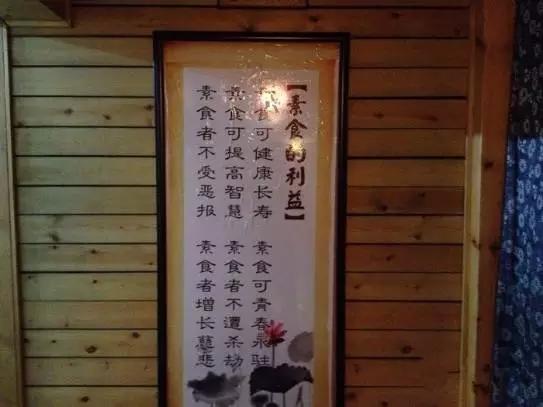 【素食的利益】
素食可健康长寿 素食可青春永驻
素食可提高智慧 素食者不遭杀劫
素食者不受恶报 素食者增长慈悲